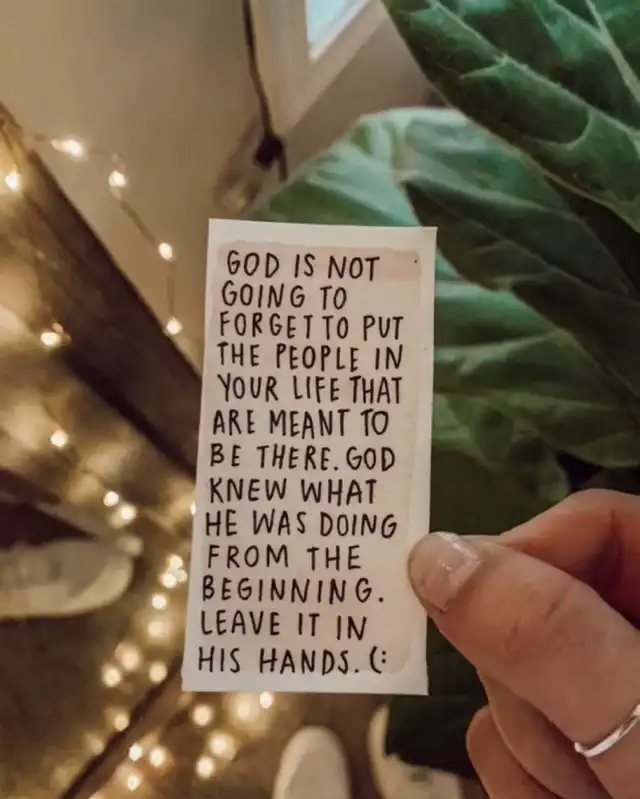 GOD IS NOT
GOING TO
FORGET TO PUT
THE PEOPLE IN
YOUR LIFE THAT
ARE MEANT TO
BE THERE. GOD
KNEW WHAT
HE WAS DOING
FROM THE
BEGINNING.
LEAVE IT IN
HIS HANDS. (: